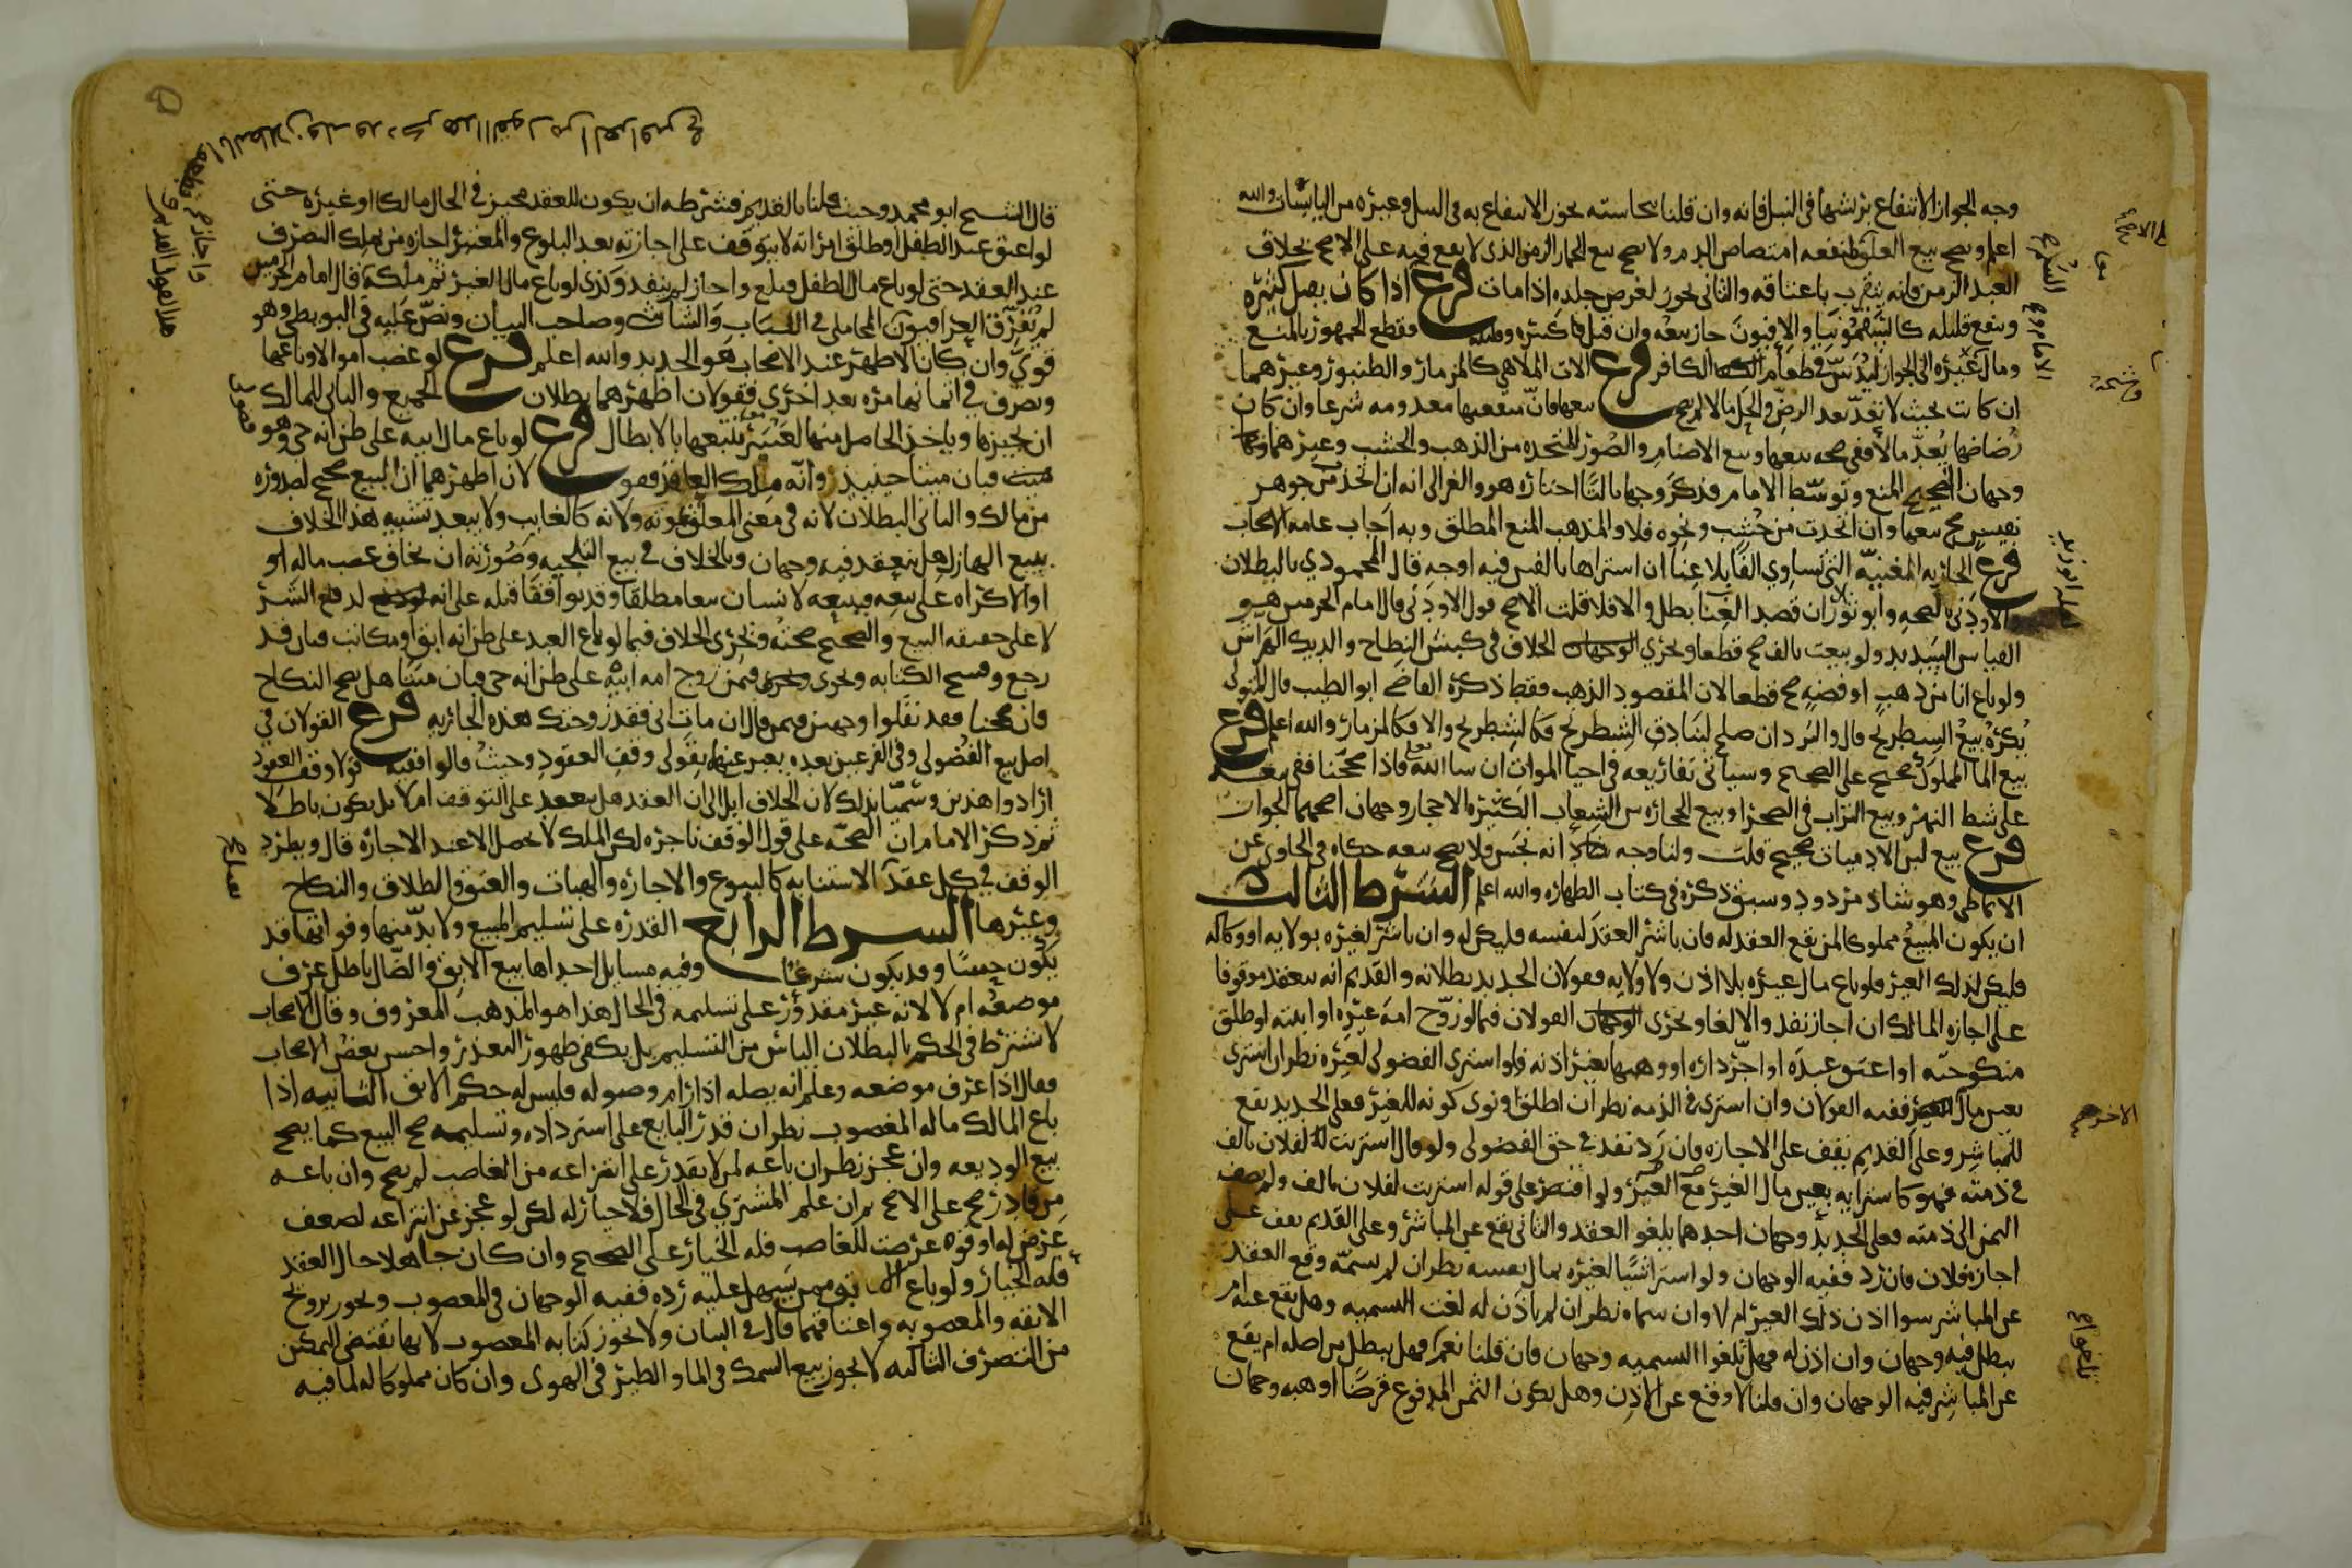 وجه الجواز الانتفاع بريشها في النبل فانه وان قلنا بنجاسته يجوز الانتفاع به في النبل وغيره من اليابسات والله
اعلم ويصح بيع العلق لمنفعه امتصاص الدم ولا يصح بيع الحمار الزمن الذي لا نفع فيه على الاصح بخلاف
العبد الزمن فانه يتقرب باعتاقه والثاني يجوز لغرض جلده اذا مات فرع اذا كان يصل كثيره
وينفع قليله كالسقمونيا والافيون جاز بيعه وان قتل كثيره فقطع الجمهور بالمنع
ومال غيره الى الجواز ليدس في طعام الكافر فرع الات الملاهي كالمزمار والطنبور وغيرهما
ان كانت بحيث لا تعد بعد الرض والحل مالا لم يصح بيعها فان منفعتها معدومه شرعا وان كان
رضاضها يعد مالا ففي صحه بيعها وبيع الاصنام والصور المتخذه من الذهب والخشب وغيرهما
وجهان الصحيح المنع وتوسط الامام فذكر وجها ثالثا اختاره هو والغزالي انه ان اتخذ من جوهر
نفيس صح بيعها وان اتخذت من خشب ونحوه فلا والمذهب المنع المطلق وبه اجاب عامه الاصحاب
فرع الجاريه المغنيه التي تساوي الفا بلا غنا ان اشتراها بالفين فيه اوجه قال المحمودي بالبطلان
والاودني بالصحه وابو زيد ان قصد الغنا بطل والا فلا قلت الاصح قول الاودني قال امام الحرمين هو
القياس السديد ولو بيعت بالف صح قطعا ويجري الخلاف في كبش النطاح والديك الهراش
ولو باع انا من ذهب او فضه صح قطعا لان المقصود الذهب فقط ذكره القاضي ابو الطيب قال المتولي
يكره بيع الشطرنج قال والنرد ان صلح لبيادق الشطرنج فكالشطرنج والا فكالمزمار والله اعلم فرع
بيع الما المملوك صحيح على الصحيح وسياتي تفاريعه في احيا الموات ان شا الله تعالى فاذا صححنا ففي بيعه
على شط النهر وبيع التراب في الصحرا وبيع الحجاره من الشعاب الكثيره الاحجار وجهان اصحهما الجواز
فرع بيع لبن الادميات صحيح قلت ولنا وجه شاذ انه نجس فلا يصح بيعه حكاه في الحاوي عن
الانماطي وهو شاذ مردود وسبق ذكره في كتاب الطهاره والله اعلم الشرط الثالث
ان يكون المبيع مملوكا لمن يقع العقد له فان باشر العقد لنفسه فليكن له وان باشر لغيره بولايه او وكاله
فليكن لذلك الغير فلو باع مال غيره بلا اذن ولا ولايه فقولان الجديد بطلانه والقديم انه ينعقد موقوفا
على اجازه المالك ان اجاز نفذ والا لغا ويجري القولان فيما لو زوج امه غيره او ابنته او طلق
منكوحته او اعتق عبده او اجر داره او وهبها بغير اذنه فلو اشترى الفضولي لغيره نظر ان اشترى
بعين مال الغير ففيه القولان وان اشترى في الذمه نظر ان اطلق او نوى كونه للغير فعلى الجديد يقع
للمباشر وعلى القديم يقف على الاجازه فان رد نفذ في حق الفضولي ولو قال اشتريت لفلان بالف
في ذمته فهو كاشترايه بعين مال الغير ولو اقتصر على قوله اشتريت لفلان بالف ولم يضف
الثمن الى ذمته فعلى الجديد وجهان احدهما يلغو العقد والثاني يقع عن المباشر وعلى القديم يقف على
اجازه فلان فان رد ففيه الوجهان ولو اشترا شيا لغيره بمال نفسه نظر ان لم يسمه وقع العقد
عن المباشر سوا اذن ذلك الغير ام لا وان سماه نظر ان لم ياذن له لغت التسميه وهل يقع عنه ام
يبطل فيه وجهان وان اذن له فهل تلغوا التسميه وجهان فان قلنا نعم فهل يبطل من اصله ام يقع
عن المباشر فيه الوجهان وان قلنا لا وقع عن الاذن وهل يكون الثمن المدفوع قرضا او هبه وجهان
قال الشيخ ابو محمد وحيث قلنا بالقديم فشرطه ان يكون للعقد مجيز في الحال مالكا او غيره حتى
لو اعتق عبد الطفل او طلق امراته لا يتوقف على اجازته بعد البلوغ والمعتبر اجازه من يملك التصرف
عند العقد حتى لو باع مال الطفل فبلغ واجاز لم ينفذ وكذى لو باع مال الغير ثم ملكه قال امام الحرمين
لم يعرف العراقيون المحاملي في اللباب والشاشي وصاحب البيان ونص عليه في البويطي وهو
قوي وان كان الاظهر عند الاصحاب هو الجديد والله اعلم فرع لو غصب اموالا وباعها
وتصرف في اثمانها مره بعد اخرى فقولان اظهرهما بطلان الجميع والثاني للمالك
ان يجيزها وياخذ الحاصل منها لعسر تتبعها بالابطال فرع لو باع مال ابيه على ظن انه حي وهو
فبان ميتا حينيذ وانه ملك العاقد فقولان اظهرهما ان البيع صحيح لصدوره
من مالك والثاني البطلان لانه في معنى المعلق بموته ولانه كالغايب ولا يبعد تشبيه هذا الخلاف
ببيع الهازل هل ينعقد فيه وجهان وبالخلاف في بيع التلجيه وصورته ان يخاف غصب ماله او
الاكراه على بيعه فيبيعه لانسان بيعا مطلقا وقد توافقا قبله على انه لدفع الشر
لا على حقيقه البيع والصحيح صحته ويجرى الخلاف فيما لو باع العبد على ظن انه ابق او مكاتب فبان قد
رجع وفسخ الكتابه ويجرى فيمن زوج امه ابيه على ظن انه حي فبان ميتا هل يصح النكاح
فان صححنا فقد نقلوا وجهين فيمن قال ان مات ابي فقد زوجتك هذه الجاريه فرع القولان في
اصل بيع الفضولي وفي الفرعين بعده يعبر عنهما بقولي وقف العقود وحيث قالوا فيه قولا وقف العقود
ارادوا هذين وسميا بذلك لان الخلاف ايل الى ان العقد هل ينعقد على التوقف ام لا بل يكون باطلا
ثم ذكر الامام ان الصحه على قول الوقف ناجزه لكن الملك لا يحصل الا عند الاجازه قال ويطرد
الوقف في كل عقد الاستنابه كالبيوع والاجاره والهبات والعتق والطلاق والنكاح
وغيرها الشرط الرابع القدره على تسليم المبيع ولا بد منها وفواتها قد
يكون حسا وقد يكون شرعا وفيه مسايل احداها بيع الابق والضال باطل عرف
موضعه ام لا لانه غير مقدور على تسليمه في الحال هذا هو المذهب المعروف وقال الاصحاب
لا يشترط في الحكم بالبطلان الياس من التسليم بل يكفي ظهور التعذر واحسن بعض الاصحاب
فقال اذا عرف موضعه وعلم انه يصله اذا رام وصوله فليس له حكم الابق الثانيه اذا
باع المالك ماله المغصوب نظر ان قدر البايع على استرداده وتسليمه صح البيع كما يصح
بيع الوديعه وان عجز نظر ان باعه لمن لا يقدر على انتزاعه من الغاصب لم يصح وان باعه
من قادر صح على الاصح ثم ان علم المشتري في الحال فلا خيار له لكن لو عجز عن انتزاعه لضعف
عرض له او قوه عرضت للغاصب فله الخيار على الصحيح وان كان جاهلا حال العقد
فله الخيار ولو باع الابق ممن يسهل عليه رده ففيه الوجهان في المغصوب ويجوز تزويج
الابقه والمغصوبه واعتاقهما قال في البيان ولا يجوز كتابه المغصوب لانها تقتضي التمكن
من التصرف الثالثه لا يجوز بيع السمك في الما والطير في الهوى وان كان مملوكا له لما فيه